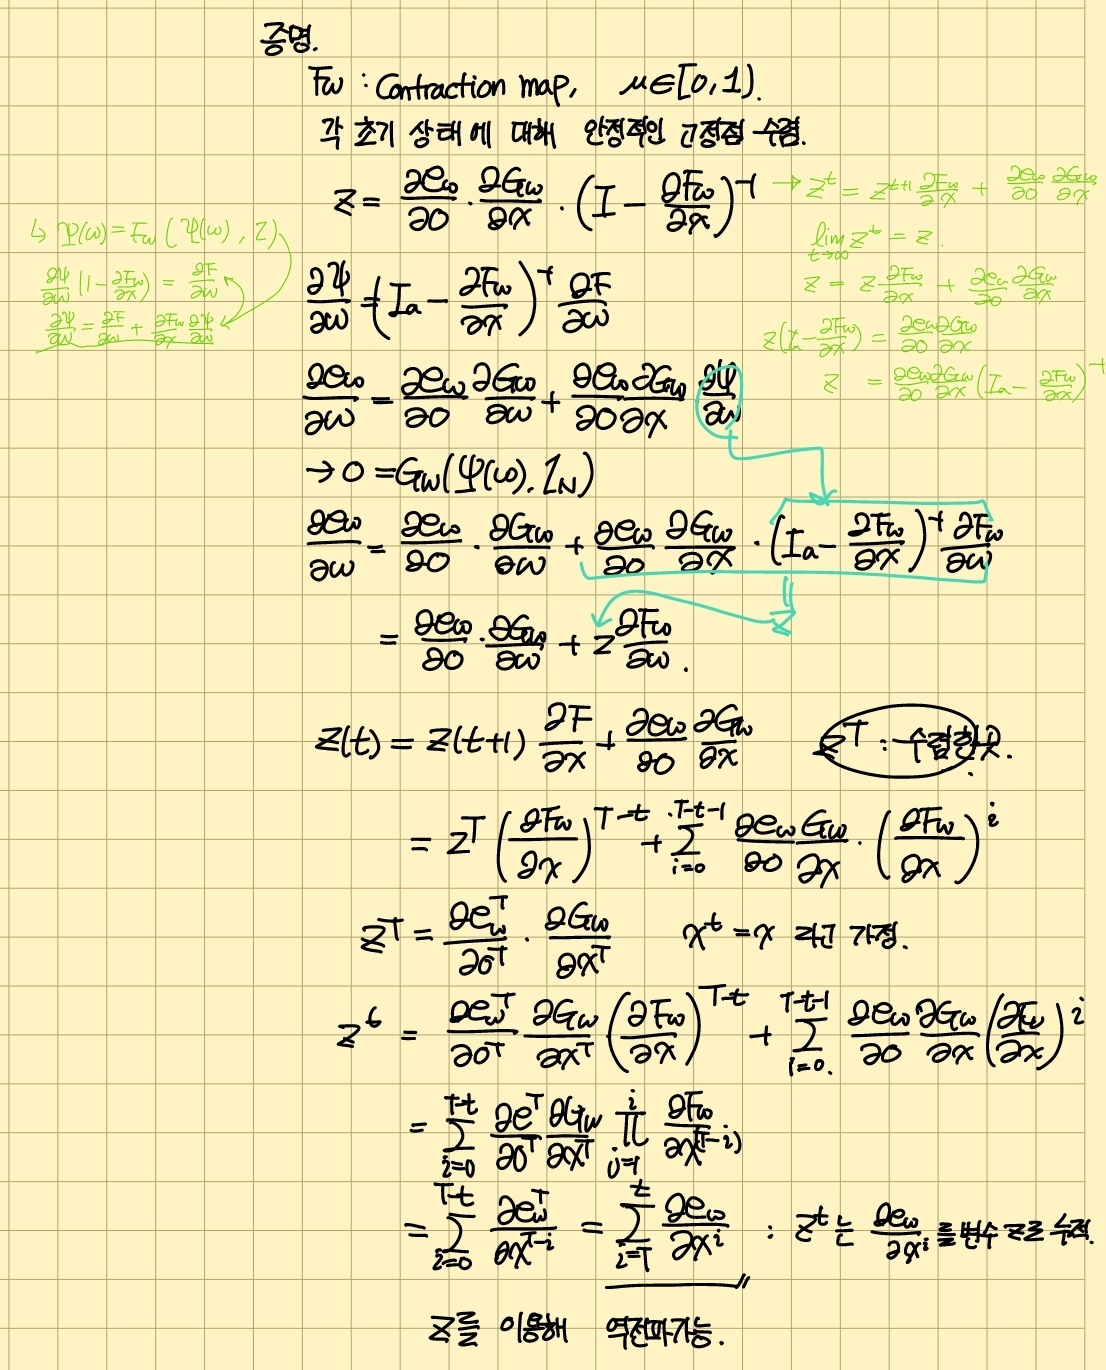 증명.
Fw : Contraction map, μ∈[0,1).
각 초기 상태에 대해 안정적인 고정점 수렴.
z = ∂ew/∂o · ∂Gw/∂x · (I - ∂Fw/∂x)^-1
→ z^t = z^(t+1) ∂Fw/∂x + ∂ew/∂o ∂Gw/∂x
lim t→∞ z^t = z.
z = z ∂Fw/∂x + ∂ew/∂o ∂Gw/∂x
z(Ia - ∂Fw/∂x) = ∂ew/∂o ∂Gw/∂x
z = ∂ew/∂o ∂Gw/∂x (Ia - ∂Fw/∂x)^-1
↳ Ψ(w) = Fw (Ψ(w), Z)
∂Ψ/∂w (1 - ∂Fw/∂x) = ∂F/∂w
∂Ψ/∂w = ∂F/∂w + ∂Fw/∂x ∂Ψ/∂w
∂Ψ/∂w = (Ia - ∂Fw/∂x)^-1 ∂F/∂w
∂ew/∂w = ∂ew/∂o ∂Gw/∂w + ∂ew/∂o ∂Gw/∂x ∂Ψ/∂w
→ o = Gw(Ψ(w), ZN)
∂ew/∂w = ∂ew/∂o · ∂Gw/∂w + ∂ew/∂o ∂Gw/∂x · (Ia - ∂Fw/∂x)^-1 ∂Fw/∂w
z
= ∂ew/∂o · ∂Gw/∂w + z ∂Fw/∂w.
z(t) = z(t+1) ∂F/∂x + ∂ew/∂o ∂Gw/∂x z^T : 수렴한곳.
= z^T (∂Fw/∂x)^(T-t) + Σ_(i=0)^(T-t-1) ∂ew/∂o Gw/∂x · (∂Fw/∂x)^i
z^T = ∂ew^T/∂o^T · ∂Gw/∂x^T x^t = x 라고 가정.
z^t = ∂ew^T/∂o^T ∂Gw/∂x^T (∂Fw/∂x)^(T-t) + Σ_(i=0)^(T-t-1) ∂ew/∂o ∂Gw/∂x (∂Fw/∂x)^i
= Σ_(i=0)^(T-t) ∂e^T/∂o^T ∂Gw/∂x^T Π_(j=1)^i ∂Fw/∂x^(T-i)
= Σ_(i=0)^(T-t) ∂ew^T/∂x^(T-i) = Σ_(i=T)^t ∂ew/∂x^i : z^t는 ∂ew/∂x^i 를 변수 z로 누적.
z를 이용해 역전파가능.